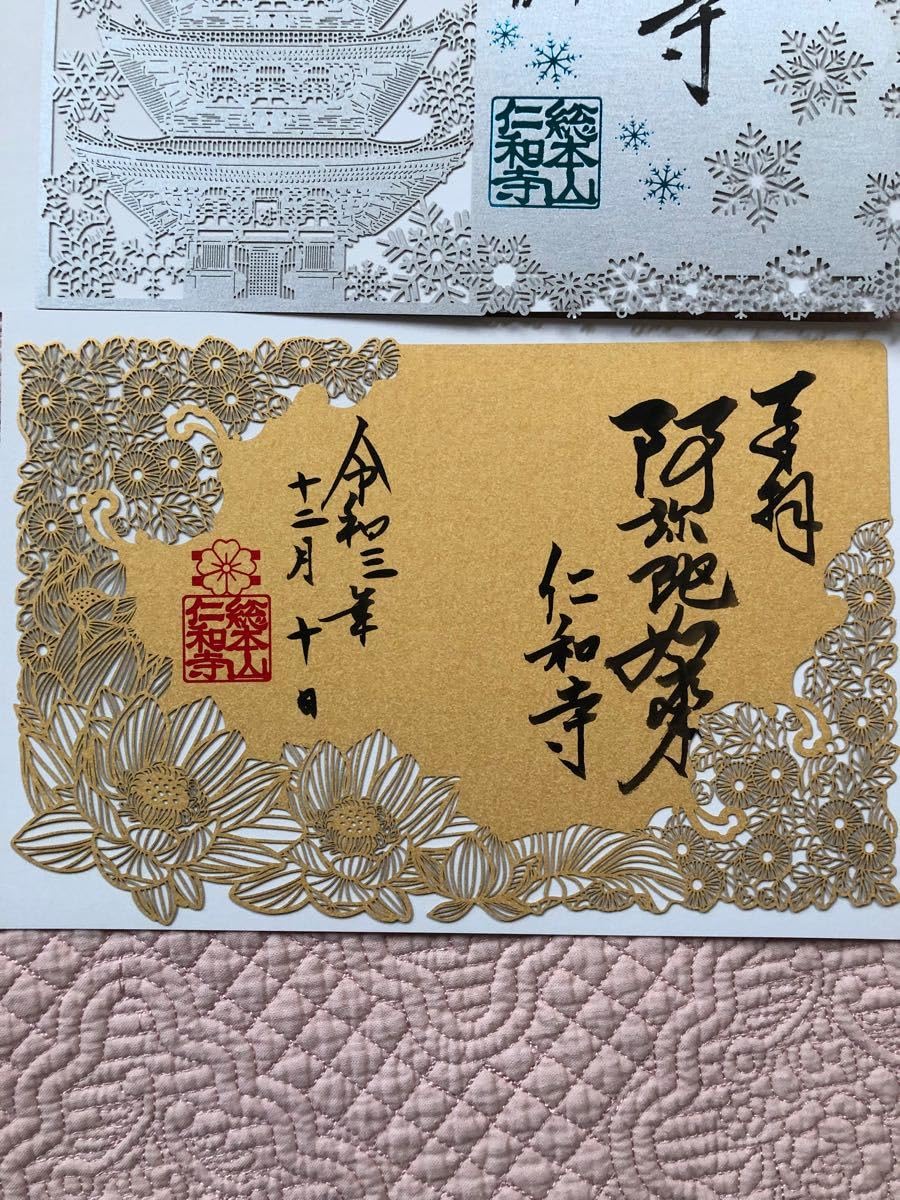 寺
総本山
仁和寺
奉拝
阿弥陀如来
仁和寺
令和三年
十二月十日
総本山
仁和寺